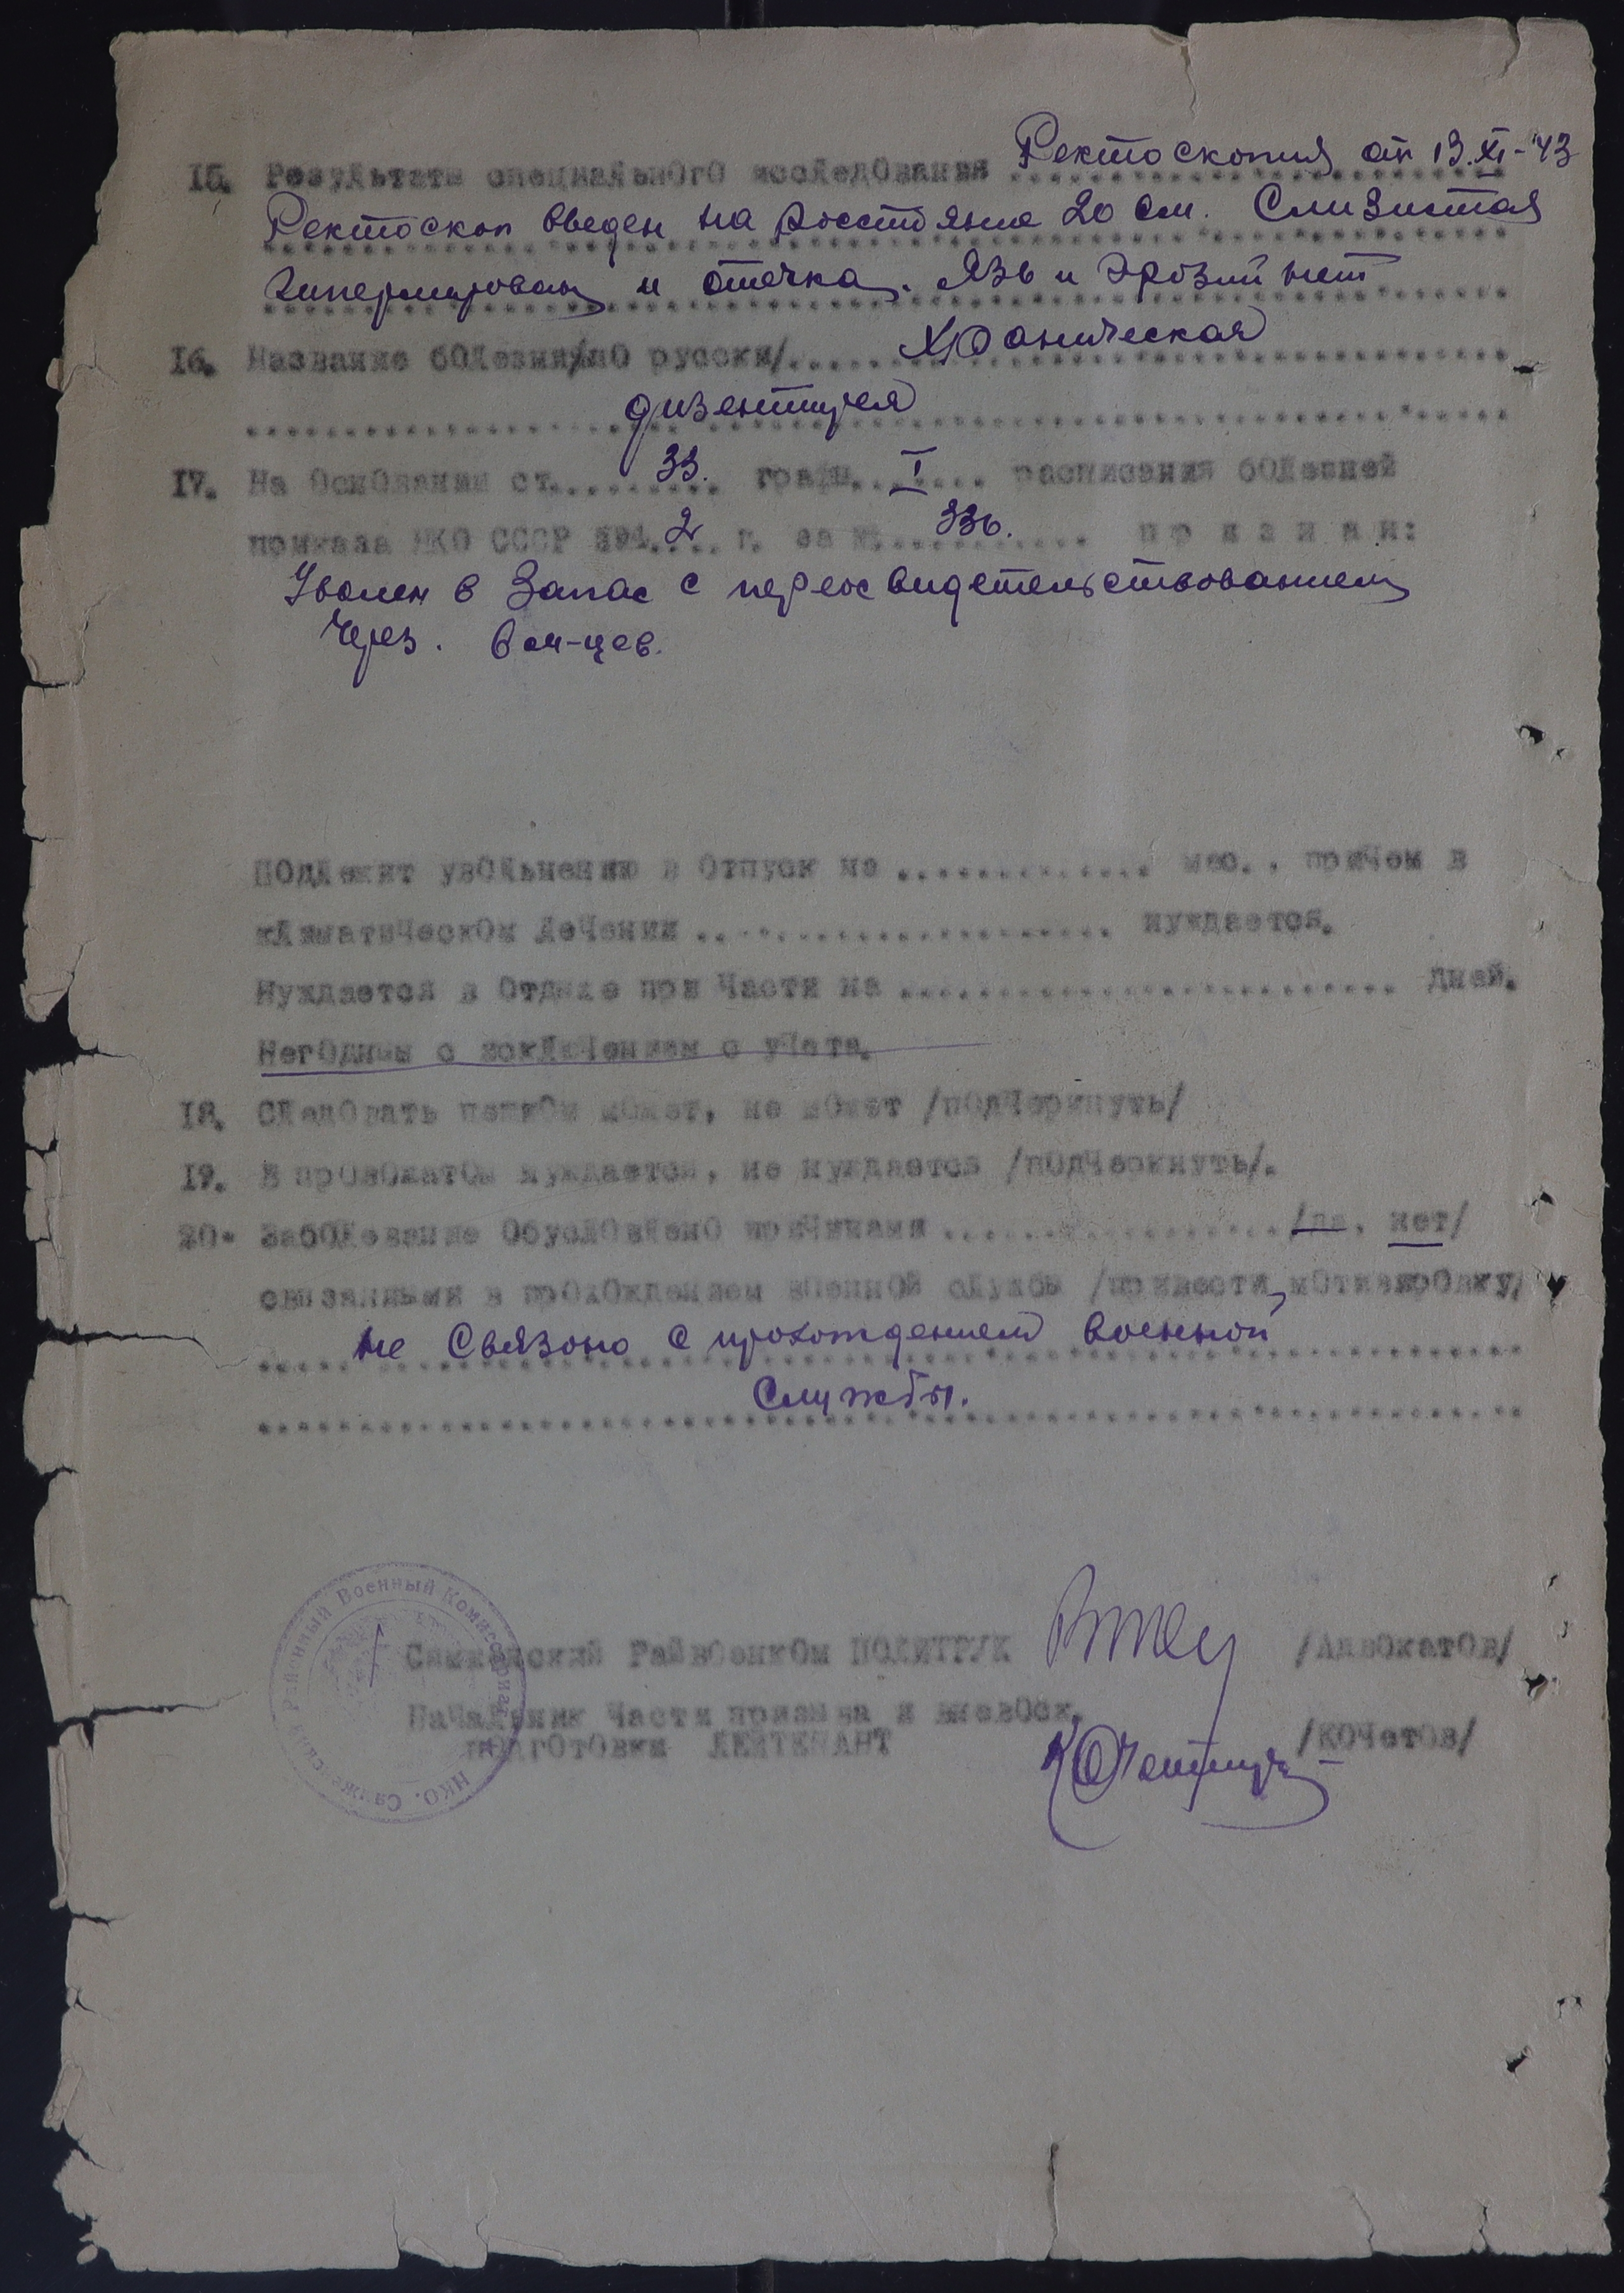 15. Результаты специального исследования Ректоскопия от 13.XI-43
Ректоскоп введен на росстояние 20 см. Слизистая
гиперирован и отечна. Язв и эрозий нет
16. Название болезни/по русски/ Хроническая
дизентирея
17. На Основании ст. 33. граф. I расписания болезней
приказа НКО СССР 194 2 г. за № 336. п р и з н а н:
Уволен в Запас с переосвидетельствованием
Через. 6 м-цев.
Подлежит увольнению в Отпуск на мес., причем в
климатическом лечении нуждается.
Нуждается в Отдыхе при Части на дней.
Негодным с исключением с учета.
18. Следовать пешком может, не может /подчеркнуть/
19. В провожатом нуждается, не нуждается /подчеркнуть/.
20. Заболевание Обусловлено причинами /да, нет/
связанными в прохождением военной службы /привести мотивировку/
не Связоно с прохождением военной
Службы.
Районный Военный Комиссариат
НКО.
Райвоенком ПОЛИТРУК /Адвокатов/
Начальник Части призыва и вневойск.
подготовки ЛЕЙТЕНАНТ /Кочетов/